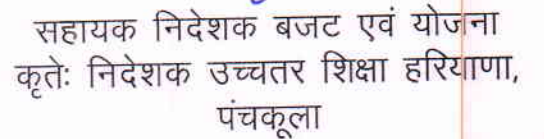 सहायक निदेशक बजट एवं योजना
कृतेः निदेशक उच्चतर शिक्षा हरियाणा,
पंचकूला